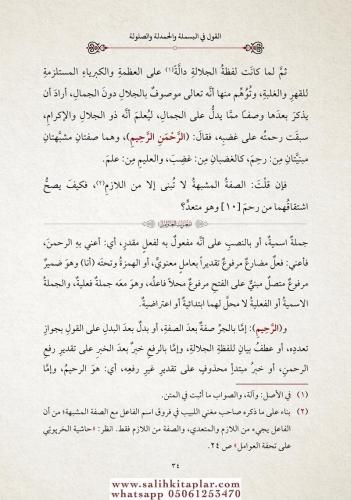 القول في البسملة والحمدلة والصلولة
ثمَّ لما كانَت لفظةُ الجلالةِ دالَّةً(١) على العظمةِ والكبرياءِ المستلزمةِ
للقهرِ والغلبةِ، وتُوُهِّم منها أنَّه تعالى موصوفٌ بالجلالِ دونَ الجمالِ، أرادَ أن
يذكرَ بعدَها وصفًا ممَّا يدلُّ على الجمالِ، ليُعلمَ أنَّه ذو الجلالِ والإكرامِ،
سبقَت رحمتُه على غضبِه، فقالَ: (الرَّحْمَنِ الرَّحِيمِ)، وهما صفتانِ مشبَّهتانِ
مبنيَّتانِ مِن: رحِمَ، كالغضبانِ مِن: غضِبَ، والعليمِ مِن: علمَ.
فإن قلتَ: الصفةُ المشبهةُ لا تُبنى إلا من اللازمِ(٢)، فكيفَ يصحُّ
اشتقاقُهما من رحمَ [١٠] وهو متعدٍّ؟
جملةٌ اسميةٌ، أو بالنصبِ على أنَّه مفعول به لفعلٍ مقدرٍ، أي: أعني بهِ الرحمنَ،
فأعني: فعلٌ مضارعٌ مرفوعٌ تقديراً بعاملٍ معنويٍّ، أو الهمزةُ وتحتَه (أنا) وهوَ ضميرٌ
مرفوعٌ متصلٌ مبنيٌّ على الفتحِ مرفوعٌ محلاً فاعلُه، وهوَ معَه جملةٌ فعليةٌ، والجملةُ
الاسميةُ أو الفعليةُ لا محلَّ لهما ابتدائيةٌ أو اعتراضيةٌ.
و(الرَّحِيمِ): إمَّا بالجرِّ صفةٌ بعدَ الصفةِ، أو بدلٌ بعدَ البدلِ على القولِ بجوازِ
تعددِه، أو عطفُ بيانٍ للفظةِ الجلالةِ، وإمَّا بالرفعِ خبرٌ بعدَ الخبرِ على تقديرِ رفعِ
الرحمنِ، أو خبرُ مبتدأٍ محذوفٍ على تقديرِ غيرِ رفعِه، أي: هوَ الرحيمُ، وإمَّا
(١) في الأصل: وآلة، والصواب ما أثبت في المتن.
(٢) بناء على ما ذكره صاحب مغني اللبيب في فروق اسم الفاعل مع الصفة المشبهة؛ من أن
الفاعل يجيء من اللازم والمتعدي، والصفة من اللازم فقط. انظر: «حاشية الخربوتي
على تحفة العوامل» ص ٢٤.
٣٤
www.salihkitaplar.com
whatsapp 05061253470